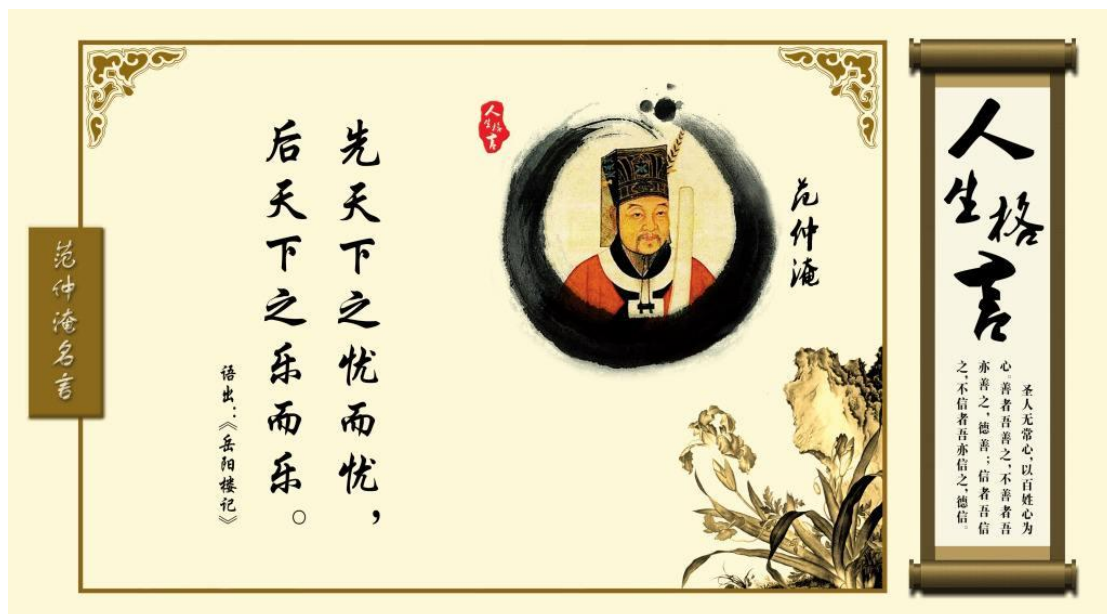 人生格言
圣人无常心，以百姓心为
心。善者吾善之，不善者吾
亦善之，德善；信者吾信
之，不信者吾亦信之，德信。
范仲淹
人生格言
先天下之忧而忧，
后天下之乐而乐。
语出：《岳阳楼记》
范仲淹名言